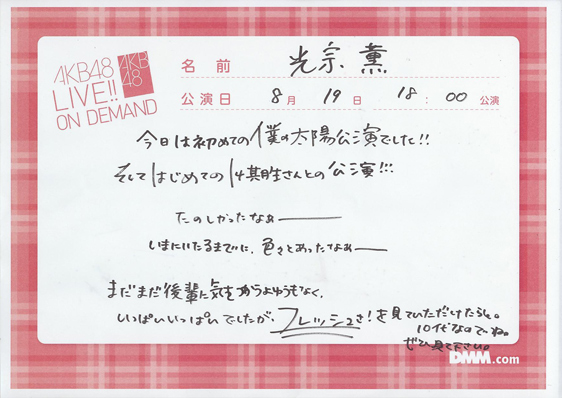 AKB48
LIVE!!
ON DEMAND
AKB
48
名前 光宗 薫
公演日 8月 19日 18:00公演
今日は初めての僕の太陽公演でした!!
そしてはじめての14期生さんとの公演!!!
たのしかったなぁー
いまにいたるまでに、色々とあったなぁー
まだまだ後輩に気をつかうよゆうもなく、
いっぱいいっぱいでしたが、フレッシュさ!を見ていただけたら。
10代なので。ね。
ぜひ見て下さい。
DMM.com